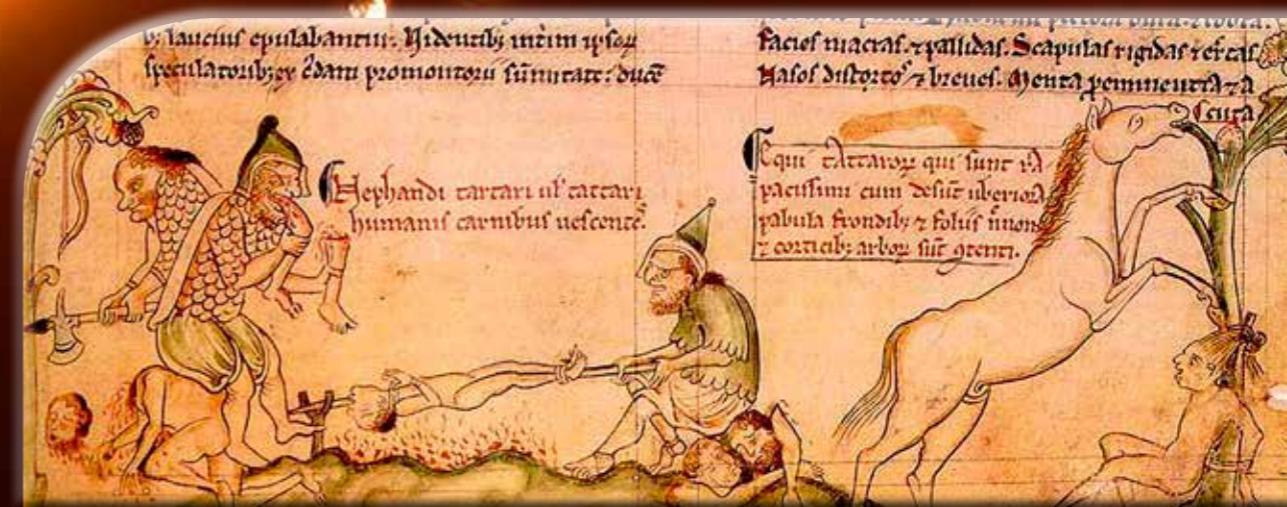 bꝫ laucius epulabantur. Videntibꝫ intim ipsoꝝ
speculatoribꝫ ex promontorii sũmitate: ducẽ
facies macras ⁊ pallidas. Scapulas rigidas ⁊
Nasos distortos ⁊ breues. Menta ꝑeminentia ⁊ a
cuta
Nephandi tartari ul' tattari
humanis carnibus uescentes.
Equi tattaroꝝ qui sunt ra
pacissimi cum desũt uberiora
pabula frondibꝫ ⁊ foliis nnon
⁊ corticibꝫ arboꝝ sũt ꝯtenti.